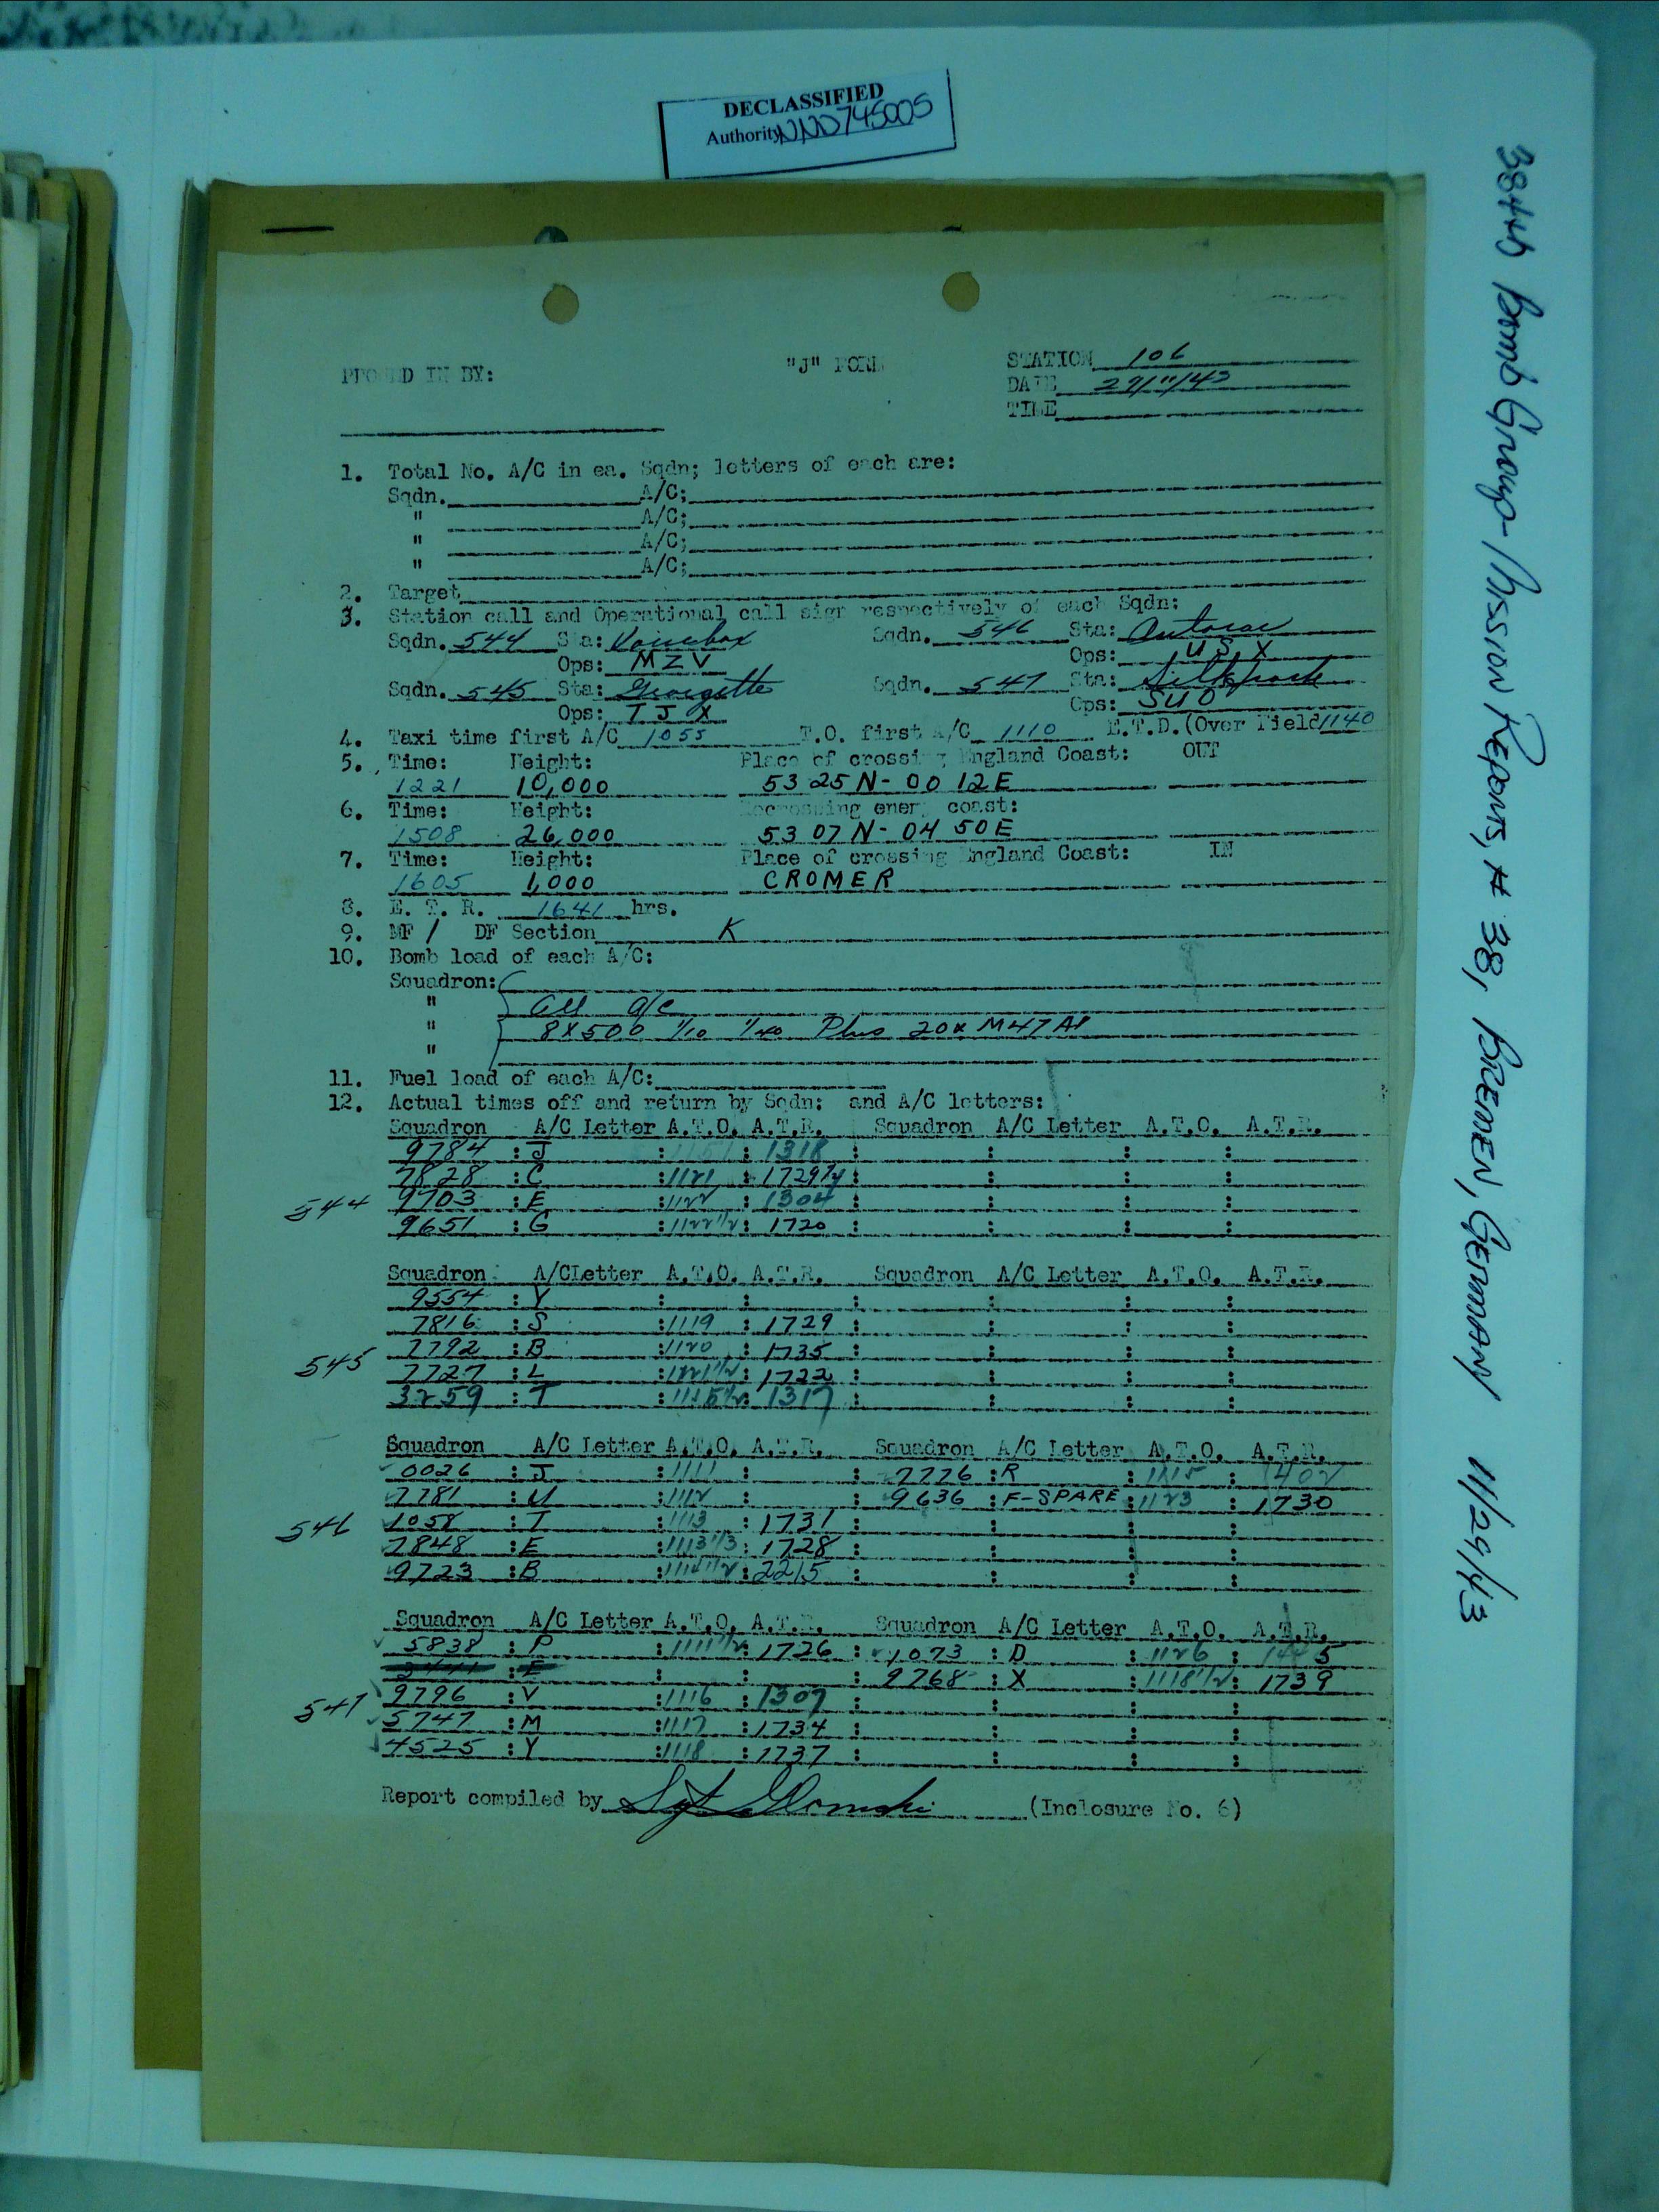 DECLASSIFIED
Authority NND745005
384th Bomb Group - Mission Reports, # 38, BREMEN, GERMAN 11/29/43
"J" FORM
STATION 106
IN BY:
DATE 29/11/43
TIME
1. Total No. A/C in ea. Sqdn; letters of each are:
Sqdn. A/C;
" A/C;
" A/C;
" A/C;
2. Target
3. Station call and Operational call sign respectively of each Sqdn:
Sqdn. 544 Sta: Sqdn. 546 Sta:
Ops: MZV Ops: USX
Sqdn. 545 Sta: Georgette Sqdn. 547 Sta:
Ops: TJX Ops: SUO
4. Taxi time first A/C 1055 T.O. first A/C 1110 E.T.D.(Over Field 1140
5. Time: Height: Place of crossing England Coast: OUT
1221 10,000 53 25 N - 00 12 E
6. Time: Height: Recrossing enemy coast:
1508 26,000 53 07 N - 04 50 E
7. Time: Height: Place of crossing England Coast: IN
1605 1,000 CROMER
8. E. T. R. 1641 hrs.
9. MF / DF Section K
10. Bomb load of each A/C:
Squadron:
" All a/c
" 8X500 1/10 1/40 Plus 20x M47A1
"
11. Fuel load of each A/C:
12. Actual times off and return by Sqdn: and A/C letters:
Squadron A/C Letter A.T.O. A.T.R. Squadron A/C Letter A.T.O. A.T.R.
9784 : J : : 1318 : : : :
7828 : C : 1121 : 1729 1/4 : : : :
544 9703 : E : 1122 : 1304 : : : :
9651 : G : 1122 1/2 : 1720 : : : :
Squadron A/CLetter A.T.O. A.T.R. Squadron A/C Letter A.T.O. A.T.R.
9554 : Y : : : : : :
7816 : S : 1119 : 1729 : : : :
7792 : B : 1120 : 1735 : : : :
545 7727 : L : 1121 1/2 : 1722 : : : :
3259 : T : : 1317 : : : :
Squadron A/C Letter A.T.O. A.T.R. Squadron A/C Letter A.T.O. A.T.R.
0026 : J : 1111 : : 7726 : R : 1115 : 1402
7781 : U : 1112 : : 9636 : F-SPARE : 1123 : 1730
546 1058 : T : 1113 : 1731 : : : :
7848 : E : 1113 1/3 : 1728 : : : :
9723 : B : 1114 1/2 : 2215 : : : :
Squadron A/C Letter A.T.O. A.T.R. Squadron A/C Letter A.T.O. A.T.R.
5838 : P : 1111 1/2 : 1726 : 1073 : D : 1126 :
: : : : 9768 : X : 1118 1/2 : 1739
547 9796 : V : 1116 : 1307 : : : :
5747 : M : 1117 : 1734 : : : :
4525 : Y : 1118 : 1737 : : : :
Report compiled by Sgt (Inclosure No. 6)